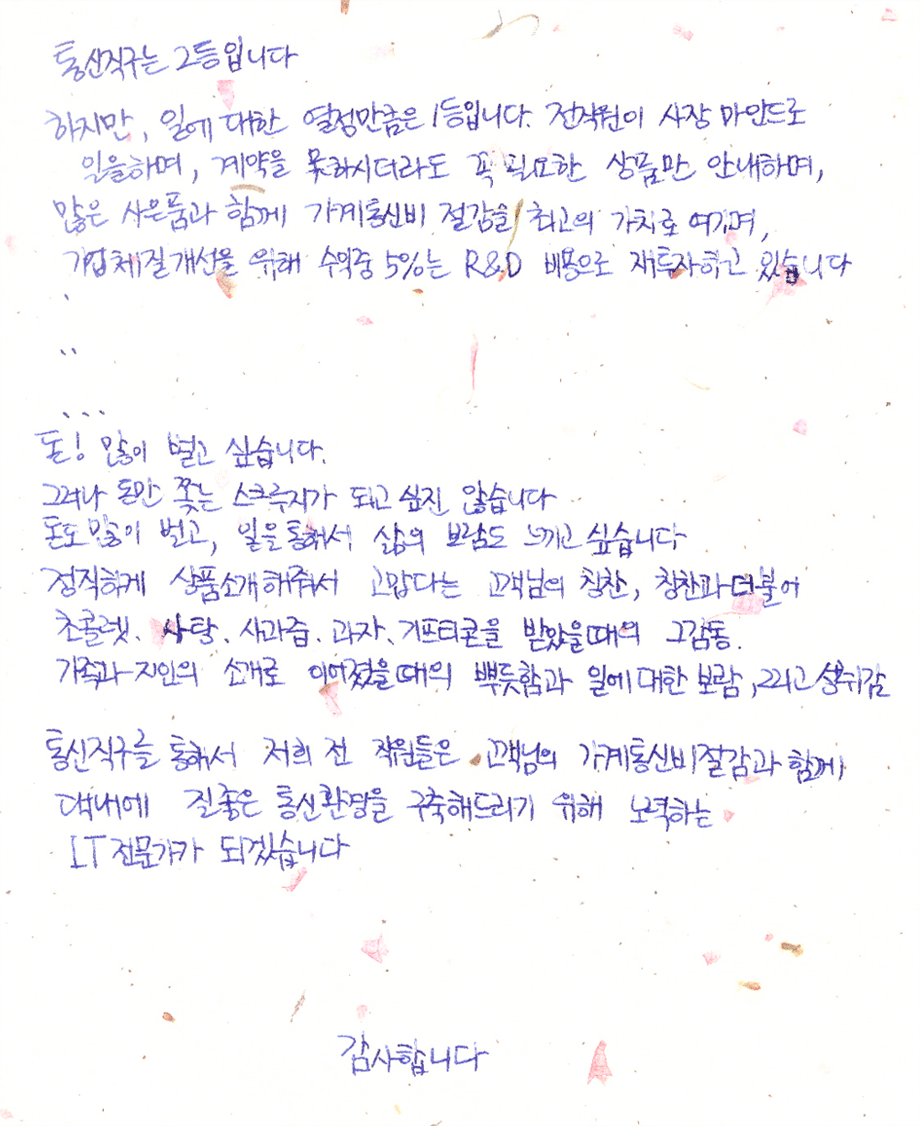 통신직구는 2등입니다
하지만, 일에 대한 열정만큼은 1등입니다. 전직원이 사장 마인드로
일을하며, 계약을 못하시더라도 꼭 필요한 상품만 안내하며,
많은 사은품과 함께 가계통신비 절감을 최고의 가치로 여기며,
기업체질개선을 위해 수익중 5%는 R&D 비용으로 재투자하고 있습니다
.
..
...
돈! 많이 벌고 싶습니다.
그러나 돈만 쫓는 스크루지가 되고 싶진 않습니다
돈도 많이 벌고, 일을통해서 삶의 보람도 느끼고 싶습니다
정직하게 상품소개해줘서 고맙다는 고객님의 칭찬, 칭찬과 더불어
초콜렛. 사탕. 사과즙. 과자. 기프티콘을 받았을때의 그감동.
가족과 지인의 소개로 이어졌을때의 뿌듯함과 일에대한 보람, 그리고 성취감
통신직구를 통해서 저희 전 직원들은 고객님의 가계통신비절감과 함께,
댁내에 질좋은 통신환경을 구축해드리기 위해 노력하는
IT 전문가가 되겠습니다
감사합니다